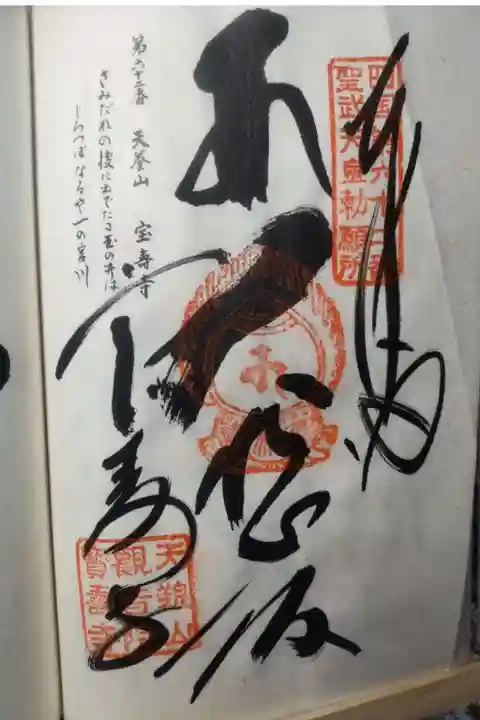 奉納
四国第六十二番
聖武天皇勅願所
宝寿寺
天養山
観音院
寶壽寺
第六十二番 天養山 宝寿寺
さみだれの後に出でたる玉の井は
しらつぼなるや一の宮川